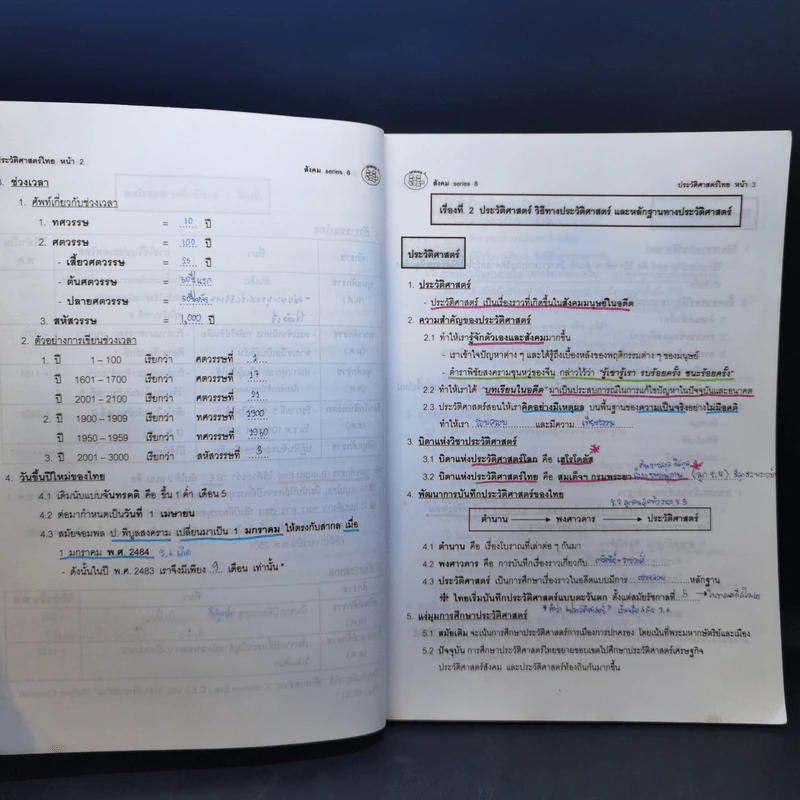 ประวัติศาสตร์ไทย หน้า 2
สังคม series 8
3. ช่วงเวลา
1. ศัพท์เกี่ยวกับช่วงเวลา
1. ทศวรรษ = 10 ปี
2. ศตวรรษ = 100 ปี
- เสี้ยวศตวรรษ = 25 ปี
- ต้นศตวรรษ = 50ปีแรก
- ปลายศตวรรษ = 50ปีหลัง
3. สหัสวรรษ = 1,000 ปี
2. ตัวอย่างการเขียนช่วงเวลา
1. ปี 1 – 100 เรียกว่า ศตวรรษที่ 1
ปี 1601 - 1700 เรียกว่า ศตวรรษที่ 17
ปี 2001 - 2100 เรียกว่า ศตวรรษที่ 21
2. ปี 1900 - 1909 เรียกว่า ทศวรรษที่ 1900
ปี 1950 - 1959 เรียกว่า ทศวรรษที่ 1950
3. ปี 2001 - 3000 เรียกว่า สหัสวรรษที่ 3
4. วันขึ้นปีใหม่ของไทย
4.1 เดิมนับแบบจันทรคติ คือ ขึ้น 1 ค่ำ เดือน 5
4.2 ต่อมากำหนดเป็นวันที่ 1 เมษายน
4.3 สมัยจอมพล ป. พิบูลสงคราม เปลี่ยนมาเป็น 1 มกราคม ให้ตรงกับสากล เมื่อ
1 มกราคม พ.ศ. 2484
- ดังนั้นในปี พ.ศ. 2483 เราจึงมีเพียง 9 เดือน เท่านั้น "
สังคม series 8
ประวัติศาสตร์ไทย หน้า 3
เรื่องที่ 2 ประวัติศาสตร์ วิธีทางประวัติศาสตร์ และหลักฐานทางประวัติศาสตร์
ประวัติศาสตร์
1. ประวัติศาสตร์
- ประวัติศาสตร์ เป็นเรื่องราวที่เกิดขึ้นในสังคมมนุษย์ในอดีต
2. ความสำคัญของประวัติศาสตร์
2.1 ทำให้เรารู้จักตัวเองและสังคมมากขึ้น
- เราเข้าใจปัญหาต่าง ๆ และได้รู้ถึงเบื้องหลังของพฤติกรรมต่าง ๆ ของมนุษย์
- ตำราพิชัยสงครามซุนหวู่ของจีน กล่าวไว้ว่า "รู้เขารู้เรา รบร้อยครั้ง ชนะร้อยครั้ง"
2.2 ทำให้เราได้ "บทเรียนในอดีต" มาเป็นประสบการณ์ในการแก้ไขปัญหาในปัจจุบันและอนาคต
2.3 ประวัติศาสตร์สอนให้เราคิดอย่างมีเหตุผล บนพื้นฐานของความเป็นจริงอย่างไม่มีอคติ
ทำให้เรา และมีความ
3. บิดาแห่งวิชาประวัติศาสตร์
3.1 บิดาแห่งประวัติศาสตร์โลก คือ เฮโรโดตัส
3.2 บิดาแห่งประวัติศาสตร์ไทย คือ สมเด็จฯ กรมพระยา
4. พัฒนาการบันทึกประวัติศาสตร์ของไทย
ตำนาน → พงศาวดาร → ประวัติศาสตร์
4.1 ตำนาน คือ เรื่องโบราณที่เล่าต่อ ๆ กันมา
4.2 พงศาวดาร คือ การบันทึกเรื่องราวเกี่ยวกับ
4.3 ประวัติศาสตร์ เป็นการศึกษาเรื่องราวในอดีตแบบมีการ หลักฐาน
ไทยเริ่มบันทึกประวัติศาสตร์แบบตะวันตก ตั้งแต่สมัยรัชกาลที่ 5
5. แง่มุมการศึกษาประวัติศาสตร์
5.1 สมัยเดิม จะเน้นการศึกษาประวัติศาสตร์การเมืองการปกครอง โดยเน้นที่พระมหากษัตริย์และเมือง
5.2 ปัจจุบัน การศึกษาประวัติศาสตร์ไทยขยายขอบเขตไปศึกษาประวัติศาสตร์เศรษฐกิจ
ประวัติศาสตร์สังคม และประวัติศาสตร์ท้องถิ่นกันมากขึ้น